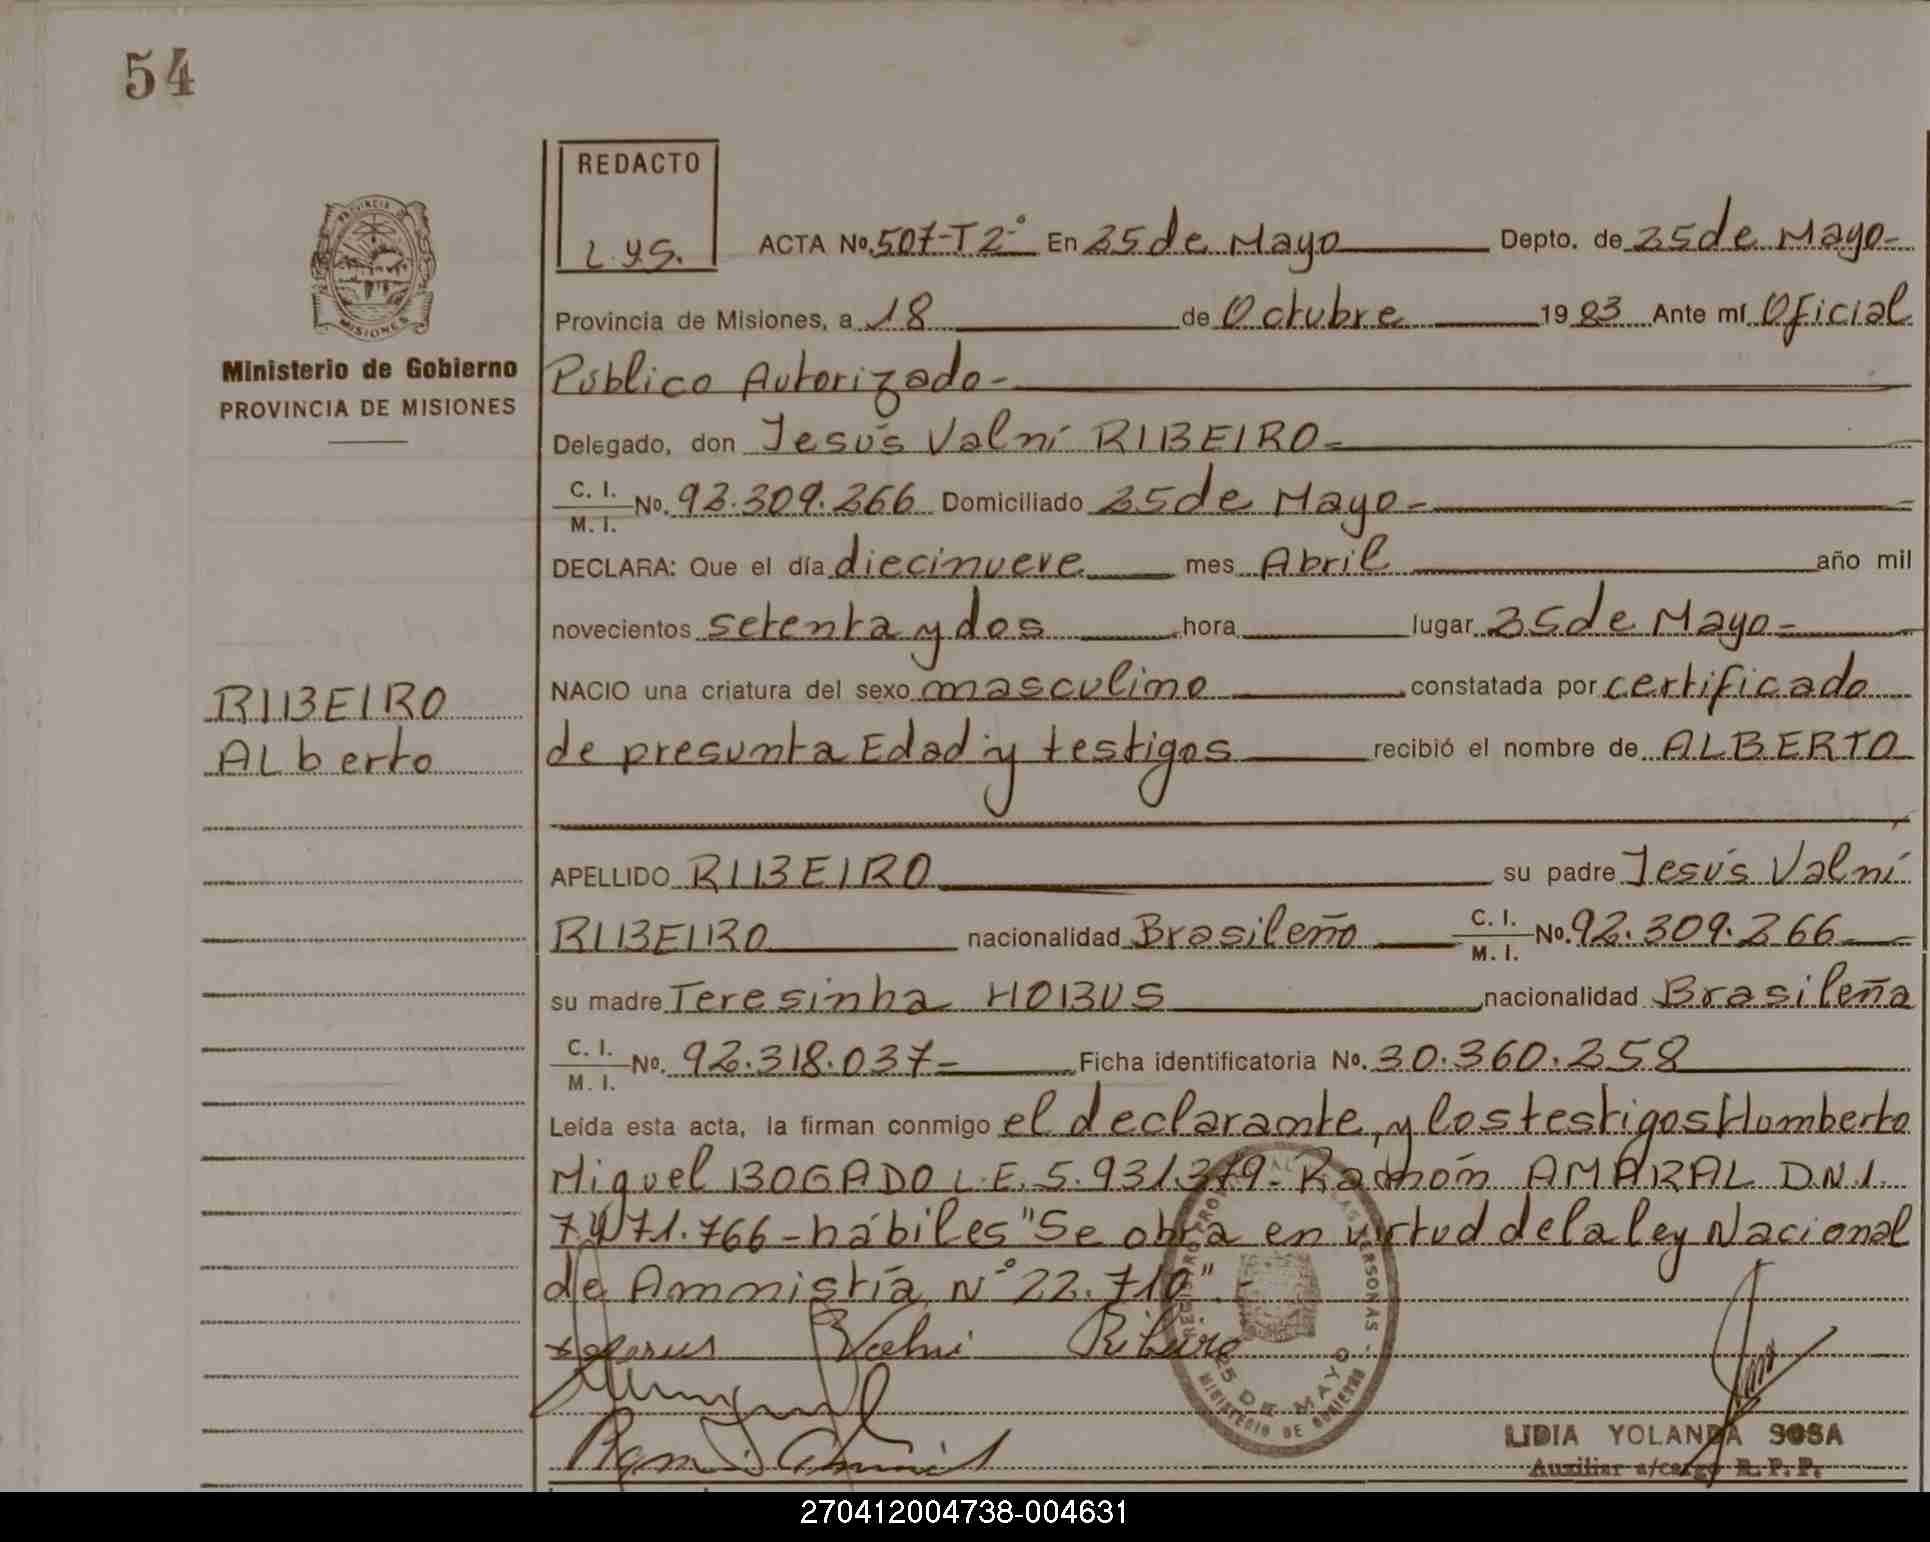 54
REDACTO
L.Y.S.
ACTA No. 507-T2-° En 25 de Mayo Depto. de 25 de Mayo-
Provincia de Misiones, a 18 de Octubre 1983 Ante mí Oficial
Público Autorizado-
Delegado, don Jesús Valní RIBEIRO-
C. I.
M. I. No. 92.309.266 Domiciliado 25 de Mayo-
DECLARA: Que el día diecinueve mes Abril año mil
novecientos setenta y dos hora lugar 25 de Mayo-
NACIO una criatura del sexo masculino constatada por certificado
de presunta Edad y testigos recibió el nombre de ALBERTO
APELLIDO RIBEIRO su padre Jesús Valní
RIBEIRO nacionalidad Brasileño C. I.
M. I. No. 92.309.266
su madre Teresinha HOBUS nacionalidad Brasileña
C. I.
M. I. No. 92.318.037- Ficha identificatoria No. 30.360.258
Leída esta acta, la firman conmigo el declarante, y los testigos Humberto
Miguel BOGADO L.E. 5.931.379- Ramón AMARAL D.N.I.
7.471.766-hábiles "Se obra en virtud de la ley Nacional
de Ammistía N° 22.710".
Valni Ribeiro
25 DE MAYO
MINISTERIO DE GOBIERNO
LIDIA YOLANDA SOSA
Auxiliar a/cargo R. P. P.
PROVINCIA DE
MISIONES
Ministerio de Gobierno
PROVINCIA DE MISIONES
RIBEIRO
ALberto
270412004738-004631